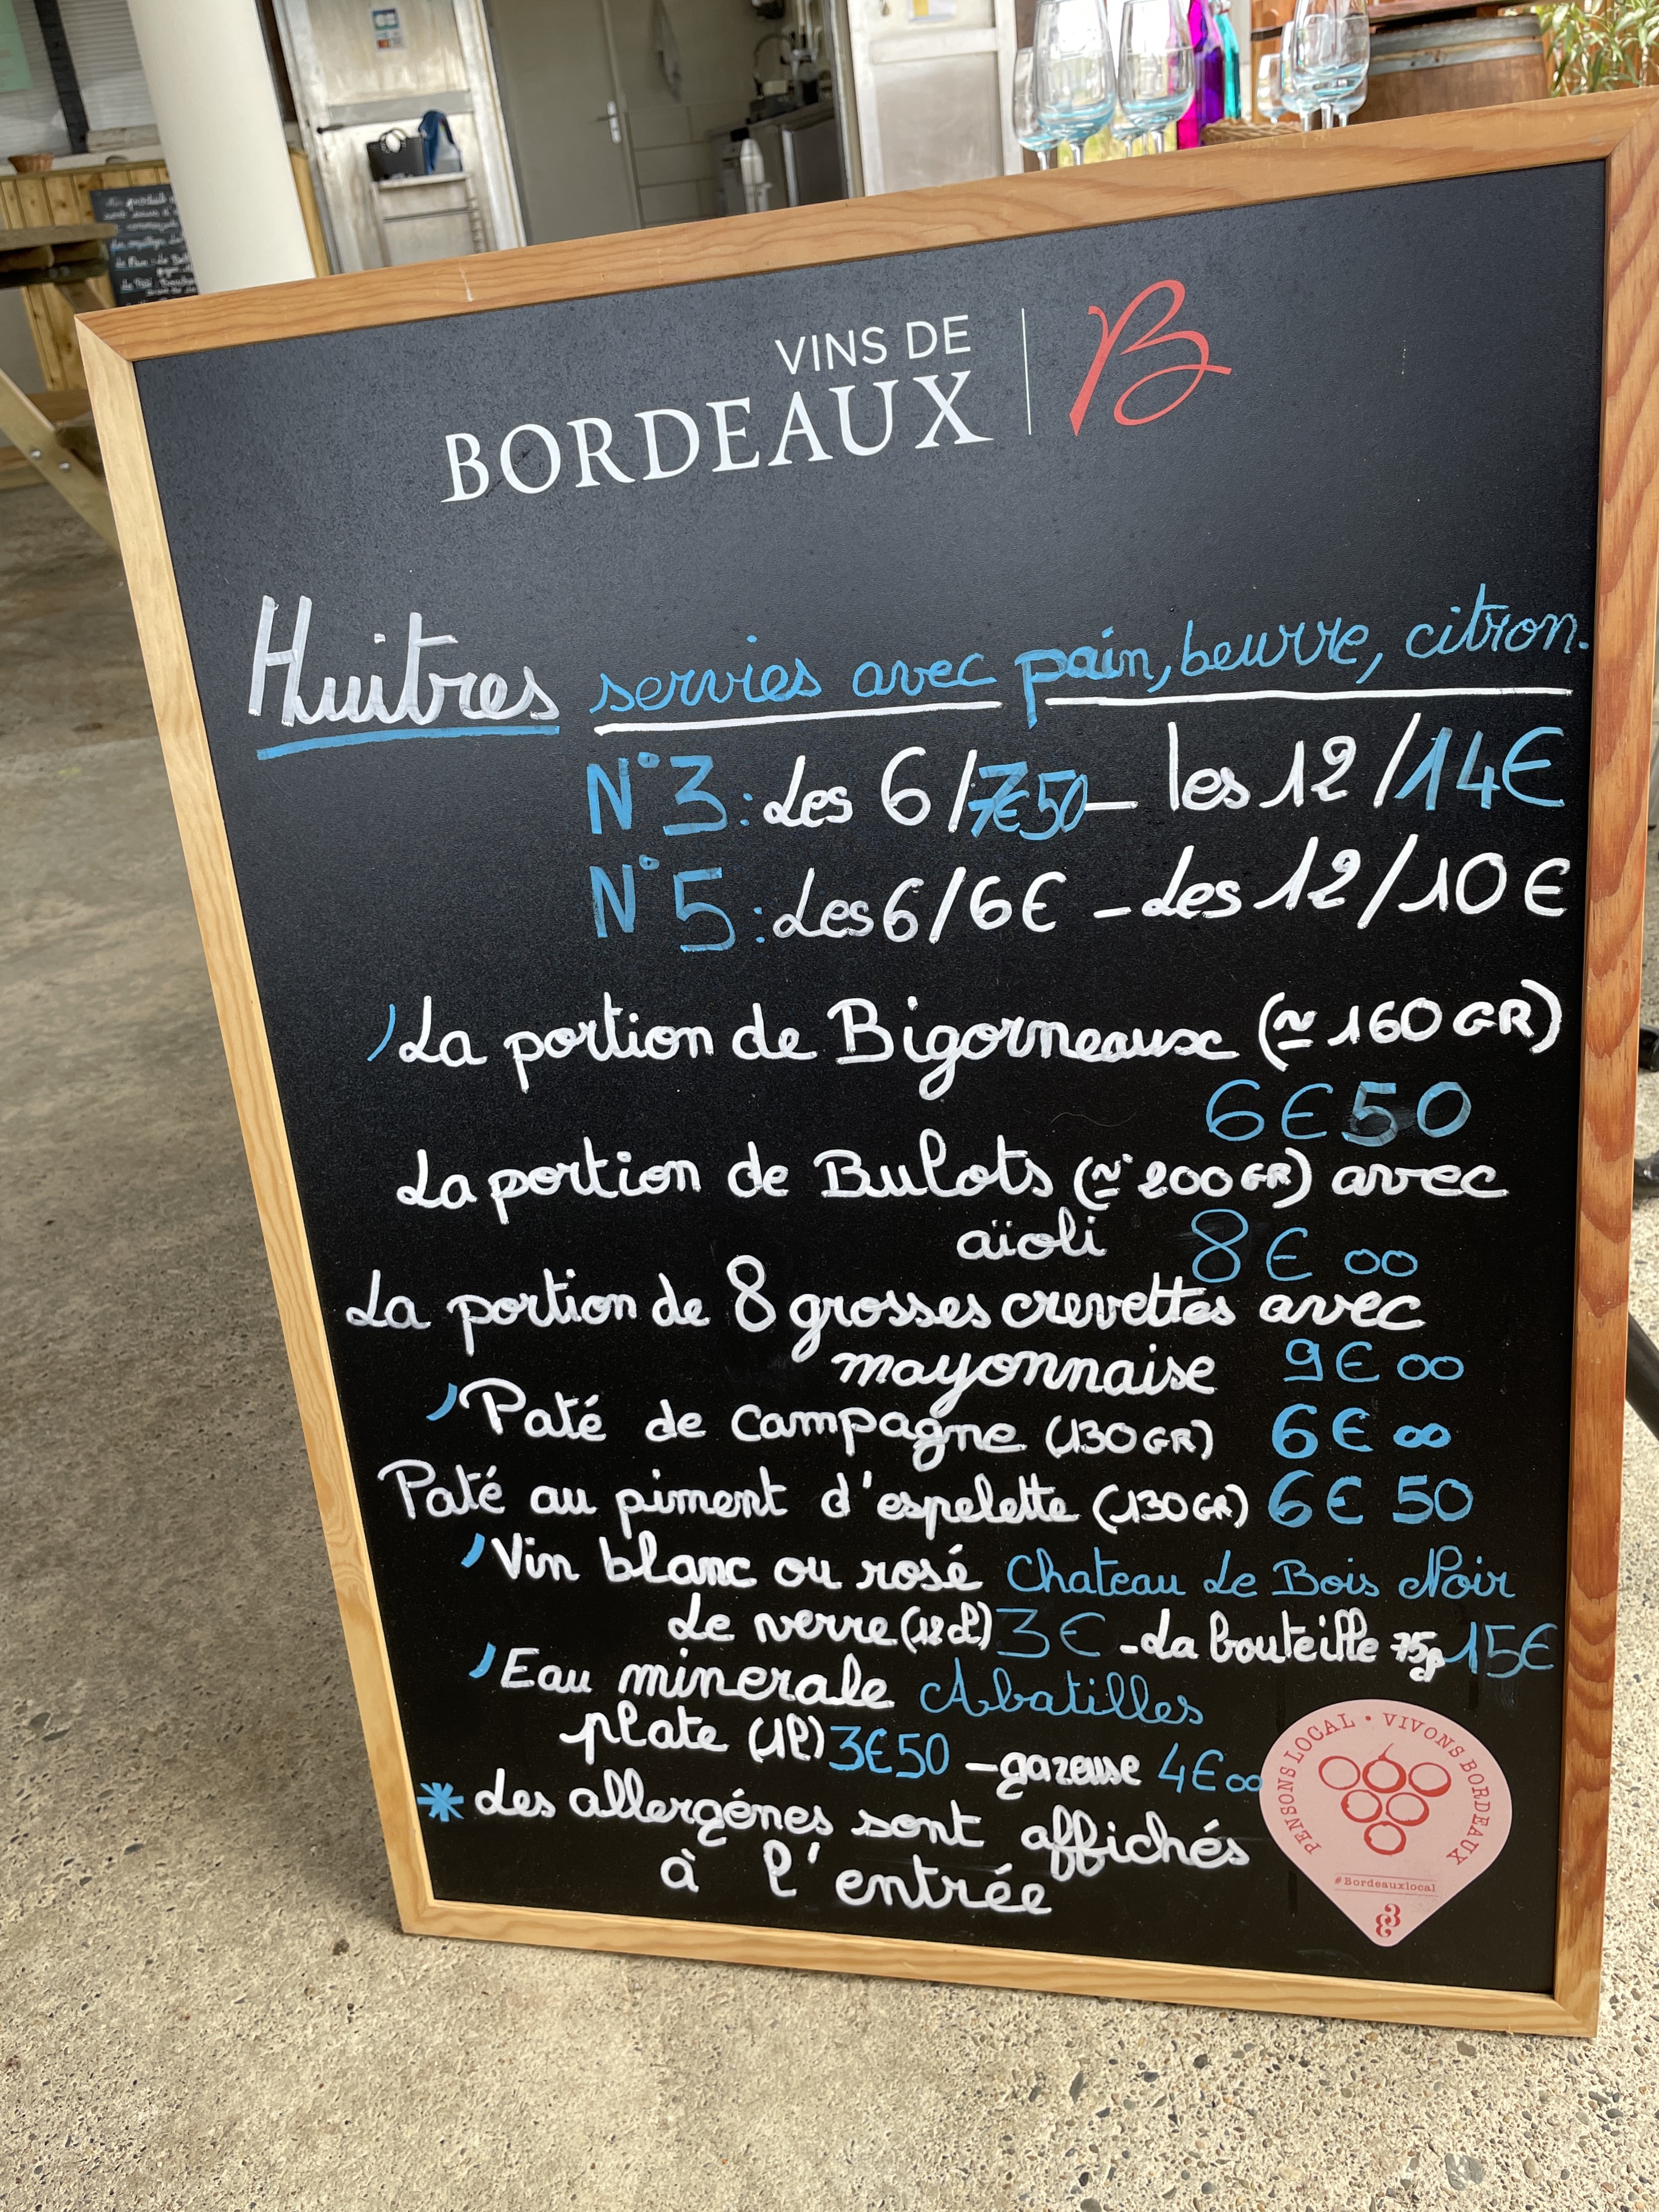 VINS DE
BORDEAUX
B
Huitres servies avec pain, beurre, citron.
N°3: Les 6/7€50 - les 12/14€
N°5: Les 6/6€ - Les 12/10€
La portion de Bigorneaux (≃160GR)
6€50
La portion de Bulots (≃200GR) avec
aïoli 8€00
La portion de 8 grosses crevettes avec
mayonnaise 9€00
Paté de campagne (130GR) 6€00
Paté au piment d'espelette (130GR) 6€50
Vin blanc ou rosé Chateau Le Bois Noir
Le verre (12cl) 3€ - La bouteille 75cl 15€
Eau minerale Abatilles
plate (1l) 3€50 - gazeuse 4€00
* Les allergénes sont affichés
à l'entrée
PENSONS LOCAL • VIVONS BORDEAUX
#Bordeauxlocal